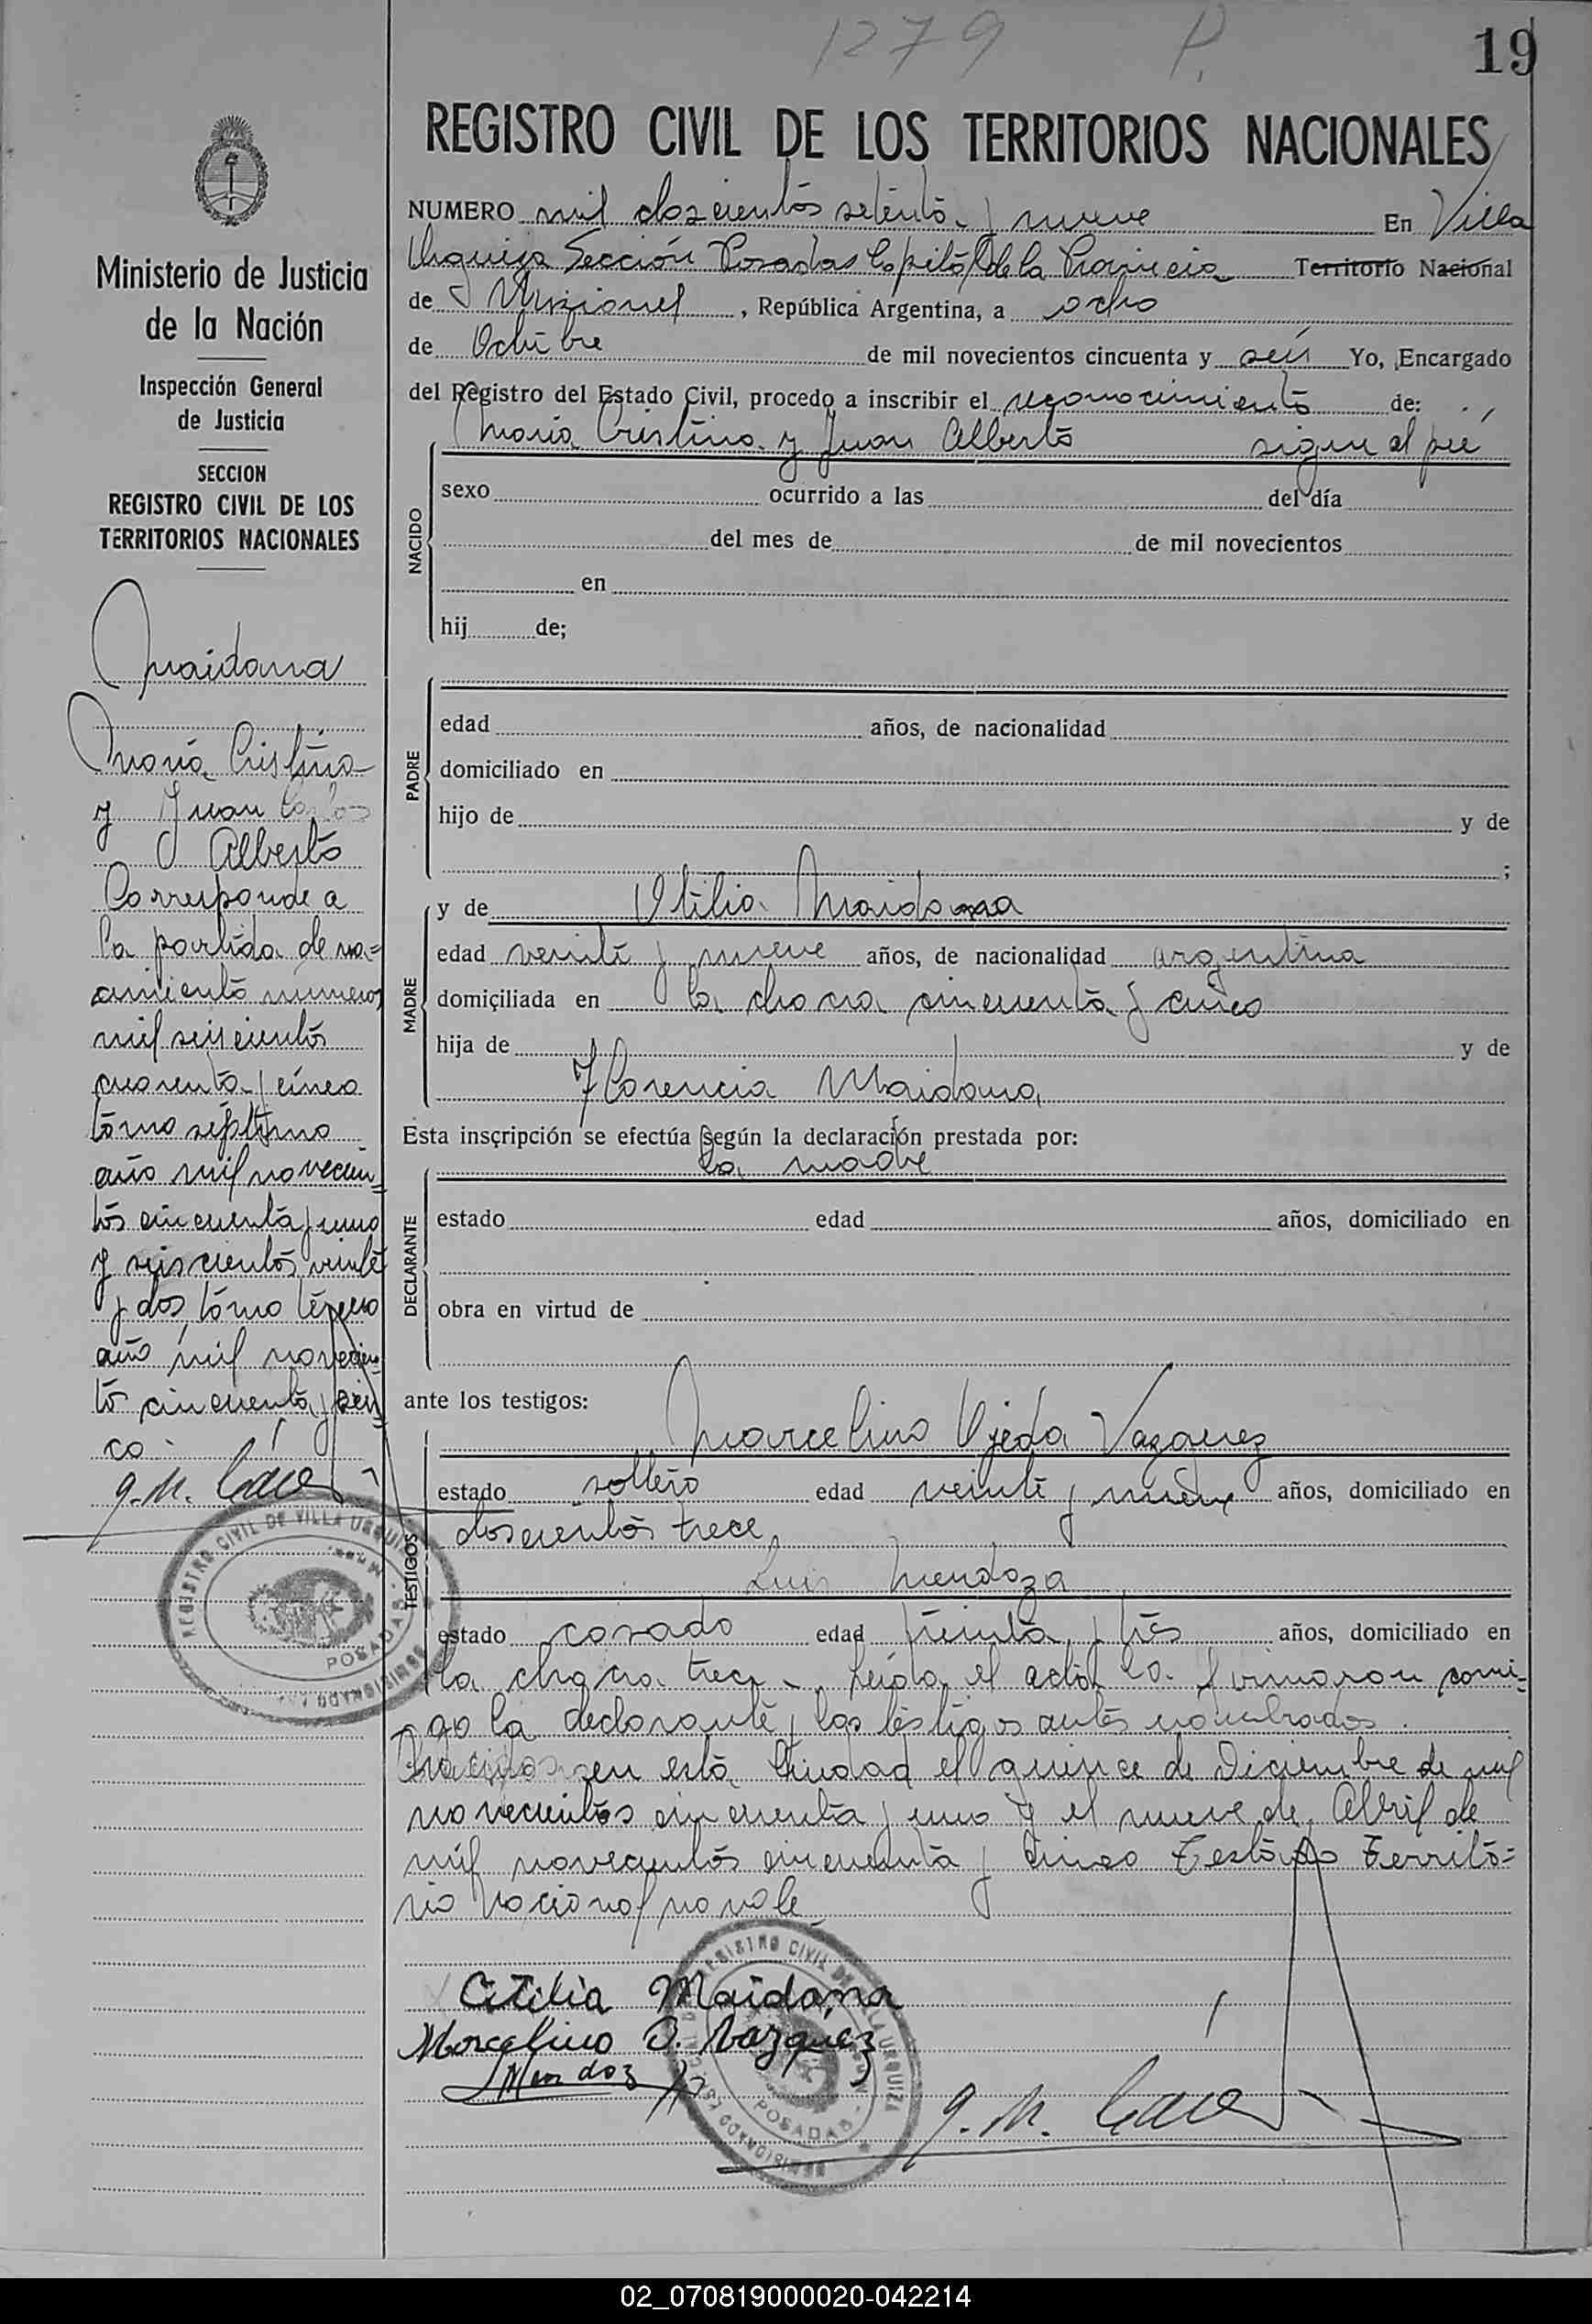 1279 P. 19
REGISTRO CIVIL DE LOS TERRITORIOS NACIONALES
Ministerio de Justicia
de la Nación
Inspección General
de Justicia
SECCION
REGISTRO CIVIL DE LOS
TERRITORIOS NACIONALES
Maidana
Maria Cristina
y Juan Carlos
Alberto
Corresponde a
la partida de na=
cimiento numeros
mil seiscientos
cuarenta y cinco
tomo séptimo
año mil novecien
tos cincuenta y uno
y seiscientos veinte
y dos tomo tércero
año mil novecien
to cincuenta y cin
co
G. M.
REGISTRO CIVIL DE VILLA URQUIZA
POSADAS
NUMERO mil doscientos setenta y nueve En Villa
Urquiza Sección Posadas Capital de la Provincia Territorio Nacional
de Misiones, República Argentina, a ocho
de Octubre de mil novecientos cincuenta y seis Yo, Encargado
del Registro del Estado Civil, procedo a inscribir el reconocimiento de:
Maria Cristina y Juan Alberto sigue al pié
NACIDO
sexo ocurrido a las del día
del mes de de mil novecientos
en
hij de;
PADRE
edad años, de nacionalidad
domiciliado en
hijo de y de
;
MADRE
y de Otilia Maidana
edad veinte y nueve años, de nacionalidad argentina
domiciliada en la chacra cincuenta y cinco
hija de y de
Florencia Maidana
Esta inscripción se efectúa según la declaración prestada por:
la madre
DECLARANTE
estado edad años, domiciliado en
obra en virtud de
ante los testigos:
TESTIGOS
Marcelino Ojeda Vazquez
estado soltero edad veinte y nueve años, domiciliado en
doscientos trece
Luis Mendoza
estado casado edad treinta y tres años, domiciliado en
la chacra trece Leída el acta la firmaron conmi=
go la declarante y los testigos antes nombrados.
Nacidos en esta Ciudad el quince de Diciembre de mil
novecientos cincuenta y uno y el nueve de Abril de
mil novecientos cincuenta y cinco Testado Territo=
rio Nacional no vale
Otilia Maidana
Marcelino O. Vazquez
Mendoz
G. M.
REGISTRO CIVIL DE VILLA URQUIZA
POSADAS
02_070819000020-042214